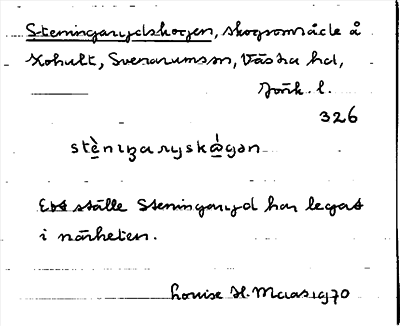 Steningarydskogen, skogsområde å
Kohult, Svenarums sn, Västra hd,
Jönk. l.
326
stè̱nıŋaryskå̱gən
Ett ställe Steningaryd har legat
i närheten.
Louise H. Maas 1970